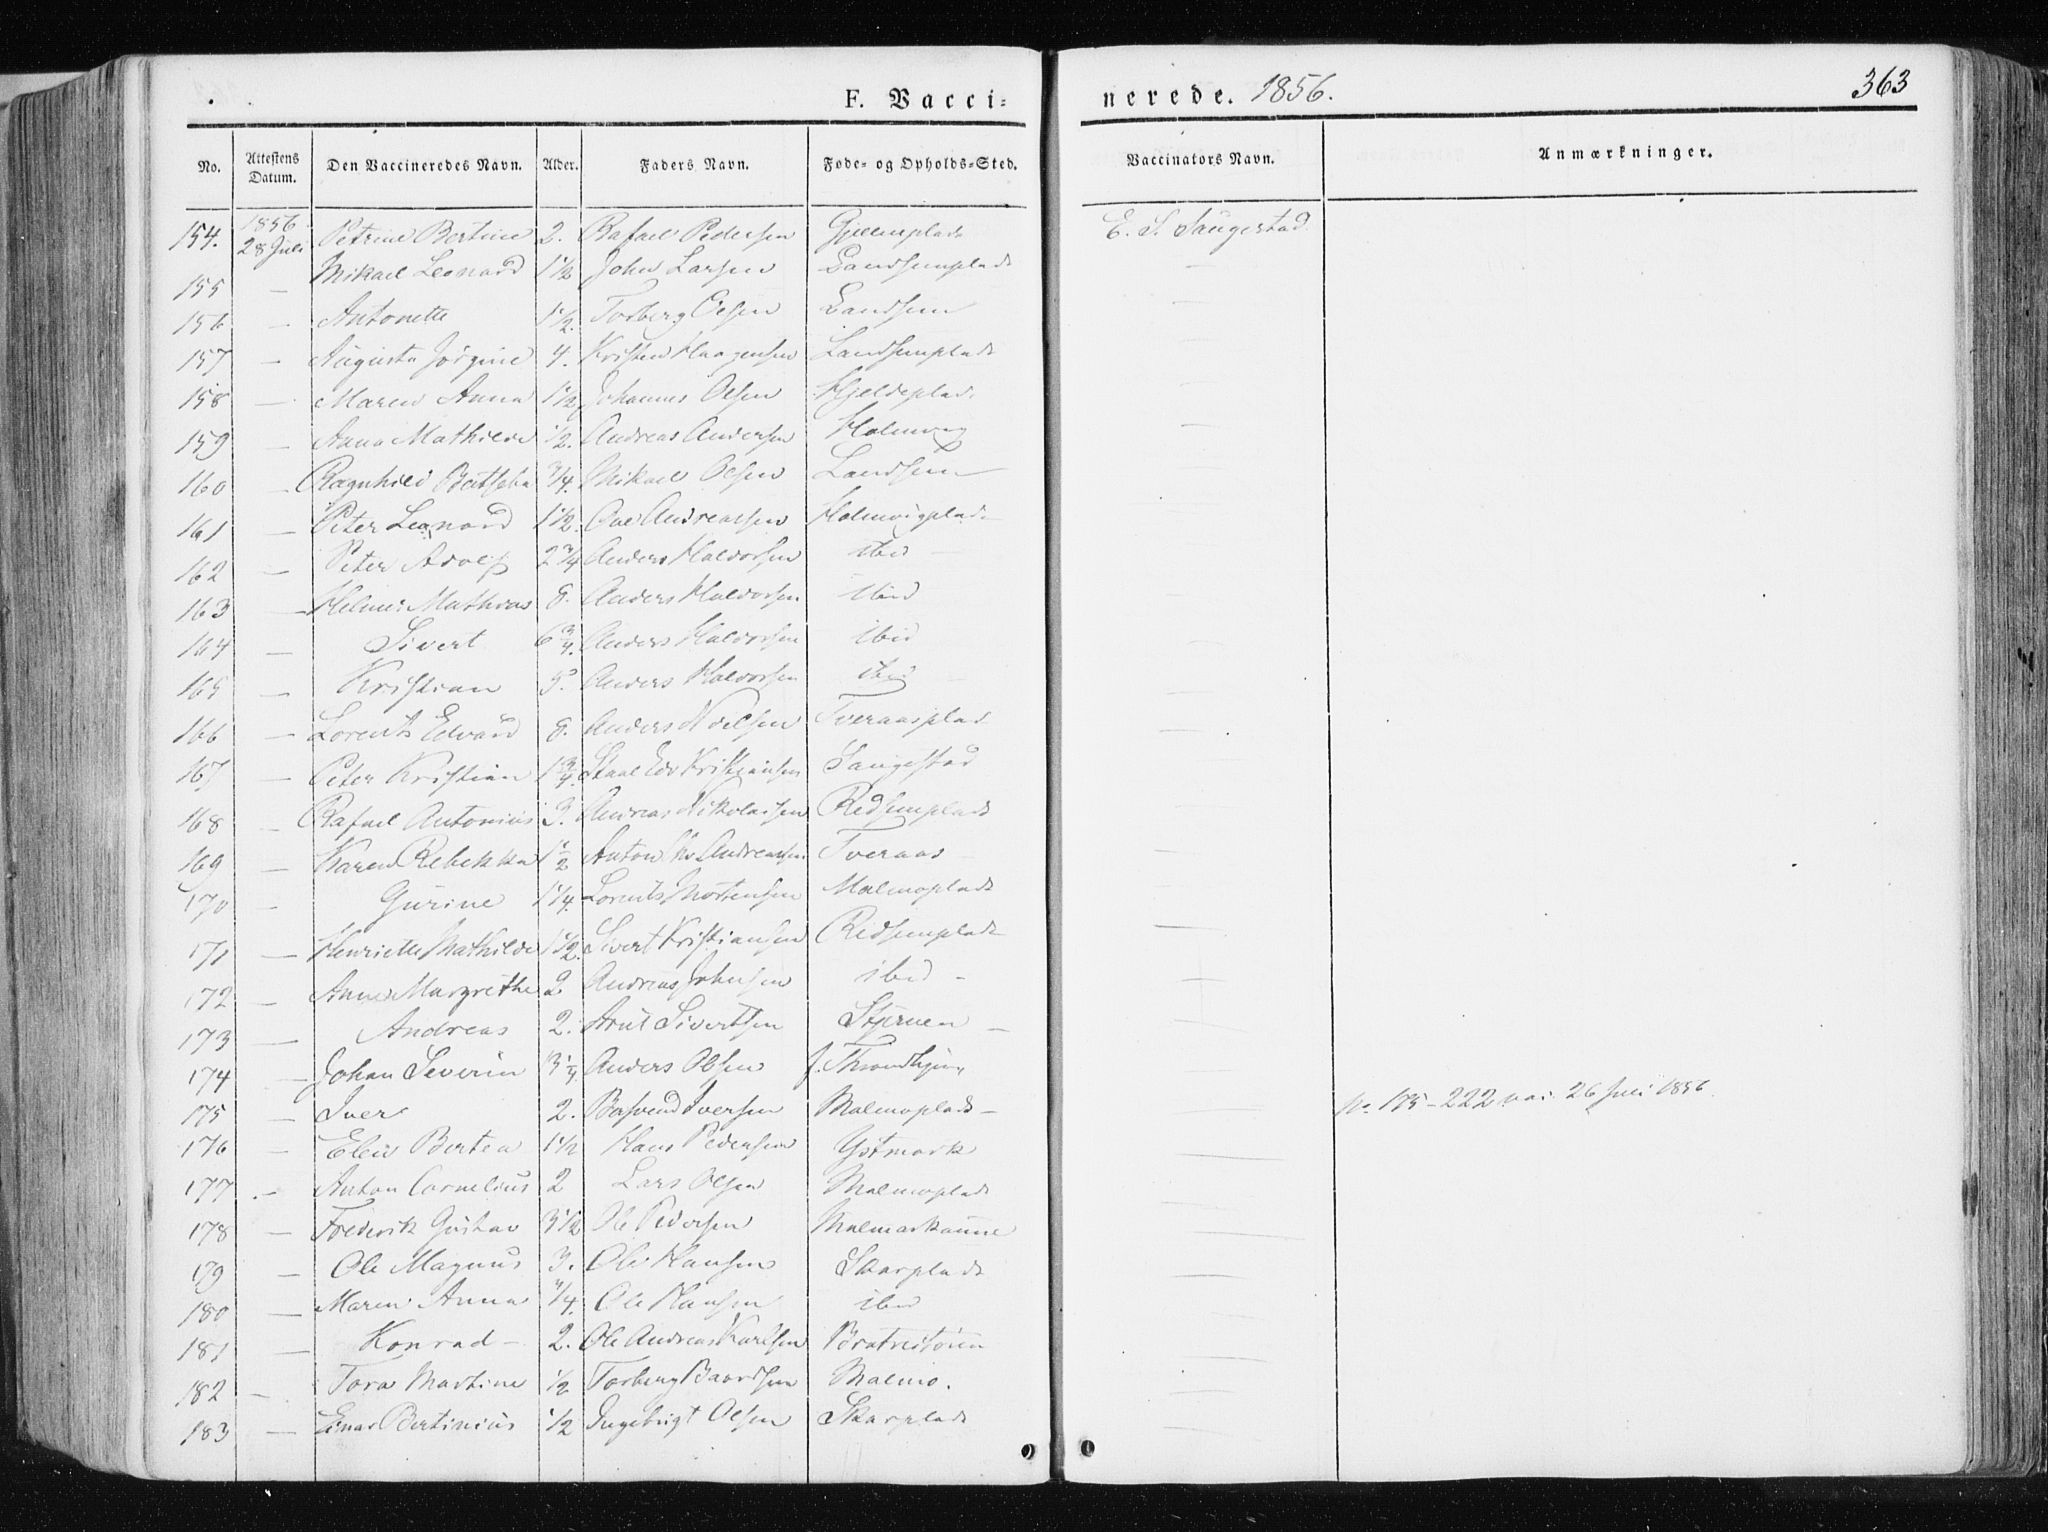 F. Vacci=
nerede. 1856.
363
No. Attestens Datum. Den Vaccineredes Navn. Alder. Faders Navn. Føde- og Opholds-Sted. Vaccinators Navn. Anmærkninger.
154. 1856 28 Juli Petrine Bertine 2. Rafael Pedersen E. S. Saugestad
155 — Mikael Leonard 1 1/2 John Larsen Landsemplads —
156 — Antonette 1 1/2. Torberg Olsen Landsem —
157 — Augusta Jørgine 4. Kristen Haagensen Landsemplads —
158 — Maren Anna 1 1/2 Johannes Olsen Hjeldeplad. —
159 — Anna Mathilde 1/2. Andreas Andersen Holmvig —
160 — Ragnhild Batseba 3/4. Mikael Olsen Landsem —
161 — Peter Leonard 1 1/2. Ole Andreassen Holmvigplad. —
162 — Peter Adolf 2 3/4 Anders Haldorsen ibid —
163 — Mathias 8. Anders Haldorsen ibid —
164 — Sivert 6 3/4. Anders Haldorsen ibid —
165 — Kristian 5. Anders Haldorsen ibid —
166 — Lorents Edvard 8. Anders Noelsen Tveraasplad —
167 — Peter Kristian 1 3/4. Kristiansen Saugestad —
168 — Rafael Antonius 3. Andreas Nikolaisen Redsemplads —
169 — Karen Rebekka 1 1/2 Anton Andreassen Tveraas —
170 — Gurine 1 1/4. Lorents Mortensen Malmoplads —
171 — Henriette Mathilde 1 1/2. Sivert Kristiansen Redsemplads —
172 — Anne Margrethe 2 Andreas Johnsen ibid —
173 — Andreas 2. Arnt Sivertsen Stjernen —
174 — Johan Severin 3 1/4 Anders Olsen —
175 — Iver 2. Iversen Malmoplads — No. 175–222 26 Juli 1856.
176 — Elen Bertea 1 1/2 Hans Pedersen Ystmark —
177 — Anton Cornelius 2 Lars Olsen Malmoplads —
178 — Frederik Gustav 3 1/2 Ole Pedersen —
179 — Ole Magnus 3. Ole Hansen Skarplads —
180 — Maren Anna 3/4. Ole Hansen ibid —
181 — Konrad — 2. Ole Andreas Karlsen —
182 — Tora Martine 1/2 Torberg Baardsen Malmo. —
183 — Einar Bertinius 1/2 Ingebrigt Olsen Skarplads —